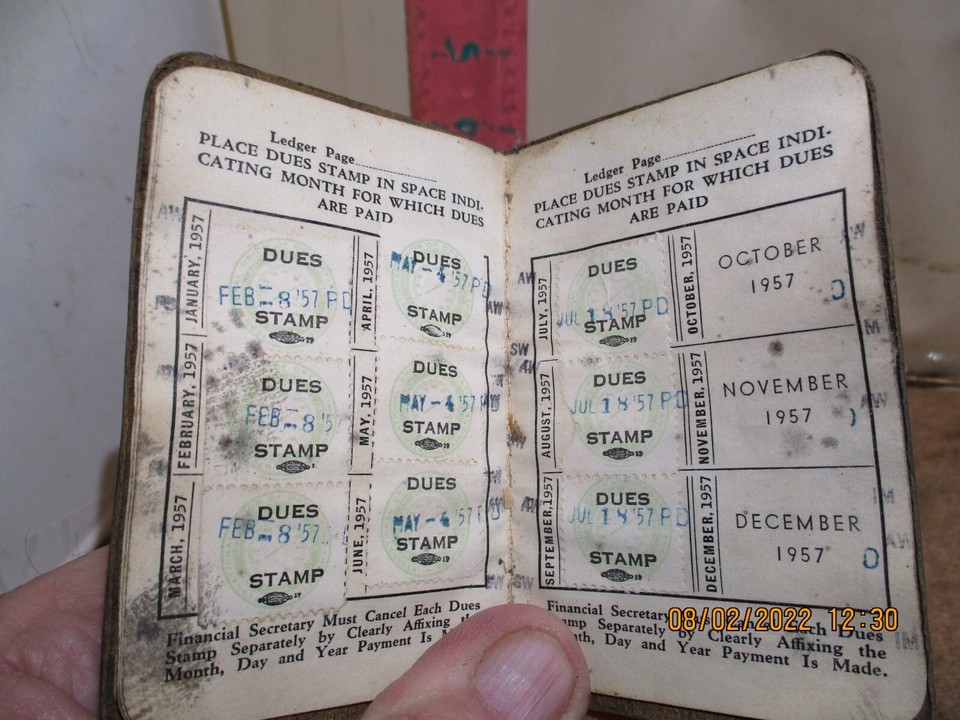 Ledger Page
PLACE DUES STAMP IN SPACE INDI-
CATING MONTH FOR WHICH DUES
ARE PAID
JANUARY, 1957
DUES
FEB - 8 '57 PD
STAMP
APRIL, 1957
DUES
MAY - 4 '57 PD
STAMP
FEBRUARY, 1957
DUES
FEB - 8 '57
STAMP
MAY, 1957
DUES
MAY - 4 '57 PD
STAMP
MARCH, 1957
DUES
FEB - 8 '57
STAMP
JUNE, 1957
DUES
MAY - 4 '57 PD
STAMP
Financial Secretary Must Cancel Each Dues
Stamp Separately by Clearly Affixing the
Month, Day and Year Payment Is
Ledger Page
PLACE DUES STAMP IN SPACE INDI-
CATING MONTH FOR WHICH DUES
ARE PAID
JULY, 1957
DUES
JUL 18 '57 PD
STAMP
OCTOBER, 1957
OCTOBER
1957
AUGUST, 1957
DUES
JUL 18 '57 PD
STAMP
NOVEMBER, 1957
NOVEMBER
1957
SEPTEMBER, 1957
DUES
JUL 18 '57 PD
STAMP
DECEMBER, 1957
DECEMBER
1957
Financial Secretary Each Dues
Stamp Separately by Clearly Affixing the
Day and Year Payment Is Made.
08/02/2022 12:30